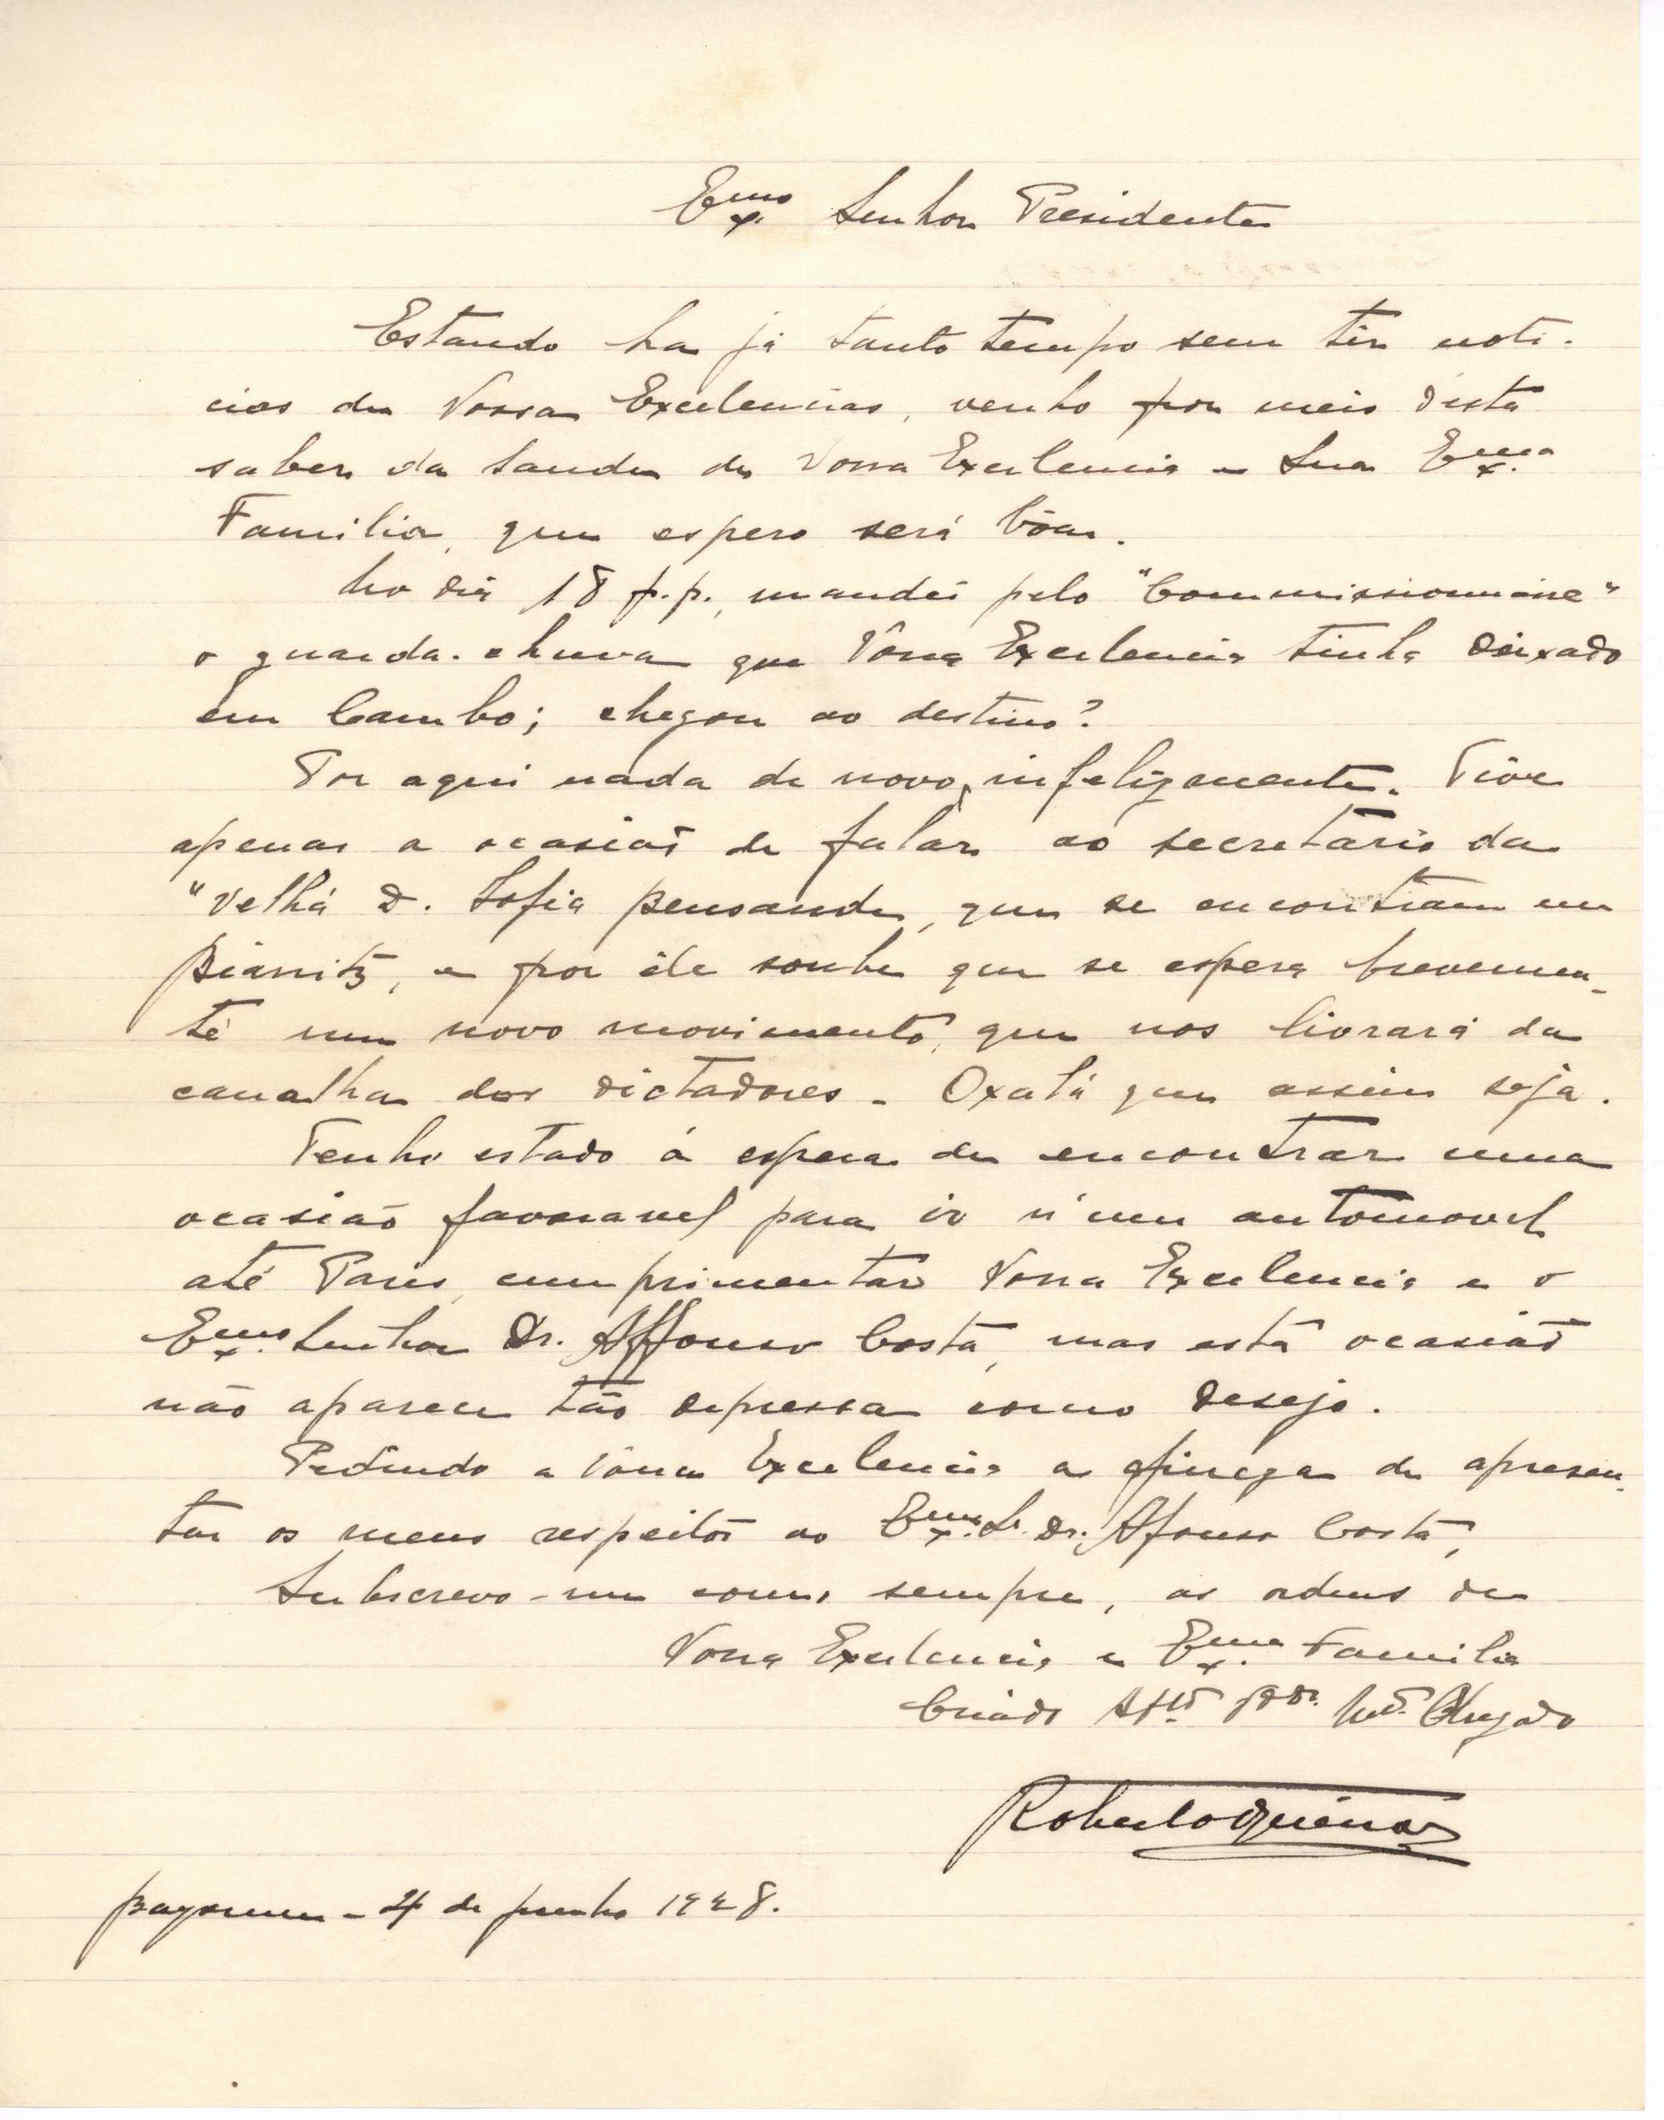 Exmo. Senhor Presidente
Estando ha já tanto tempo sem têr noti-
cias de Vossas Excelencias, venho por meio desta
saber da saude de Vossa Excelencia e Sua Exma.
Familia, que espero será bôa.
No dia 18 p.p., mandei pelo "Commissionnaire"
o guarda-chuva que Vossa Excelencia tinha deixado
em Cambo; chegou ao destino?
Por aqui nada de novo, infelizmente. Tive
apenas a ocasião de falar ao secretário da
"Velhá D. Sofia que se encontram em
Biarritz, e por êle soube que se espera brevemen-
te um novo movimento, que nos livrará da
canalha dos dictadores - Oxalá que assim seja.
Tenho estado á espera de encontrar uma
ocasião favoravel para ir n'um automovel
até Paris, cumprimentar Vossa Excelencia e o
Exmo. Senhor Dr. Affonso Costa, mas esta ocasião
não aparece tão depressa como desejo.
Pedindo a Vossa Excelencia a fineza de apresen-
tar os meus respeitos ao Exmo. Sr. Dr. Afonso Costa,
Subscrevo-me como sempre, as ordens de
Vossa Excelencia e Exma. Familia
Criado Atto. Mto. Obrgado
Roberto
Bayonne - 4 de Junho 1928.